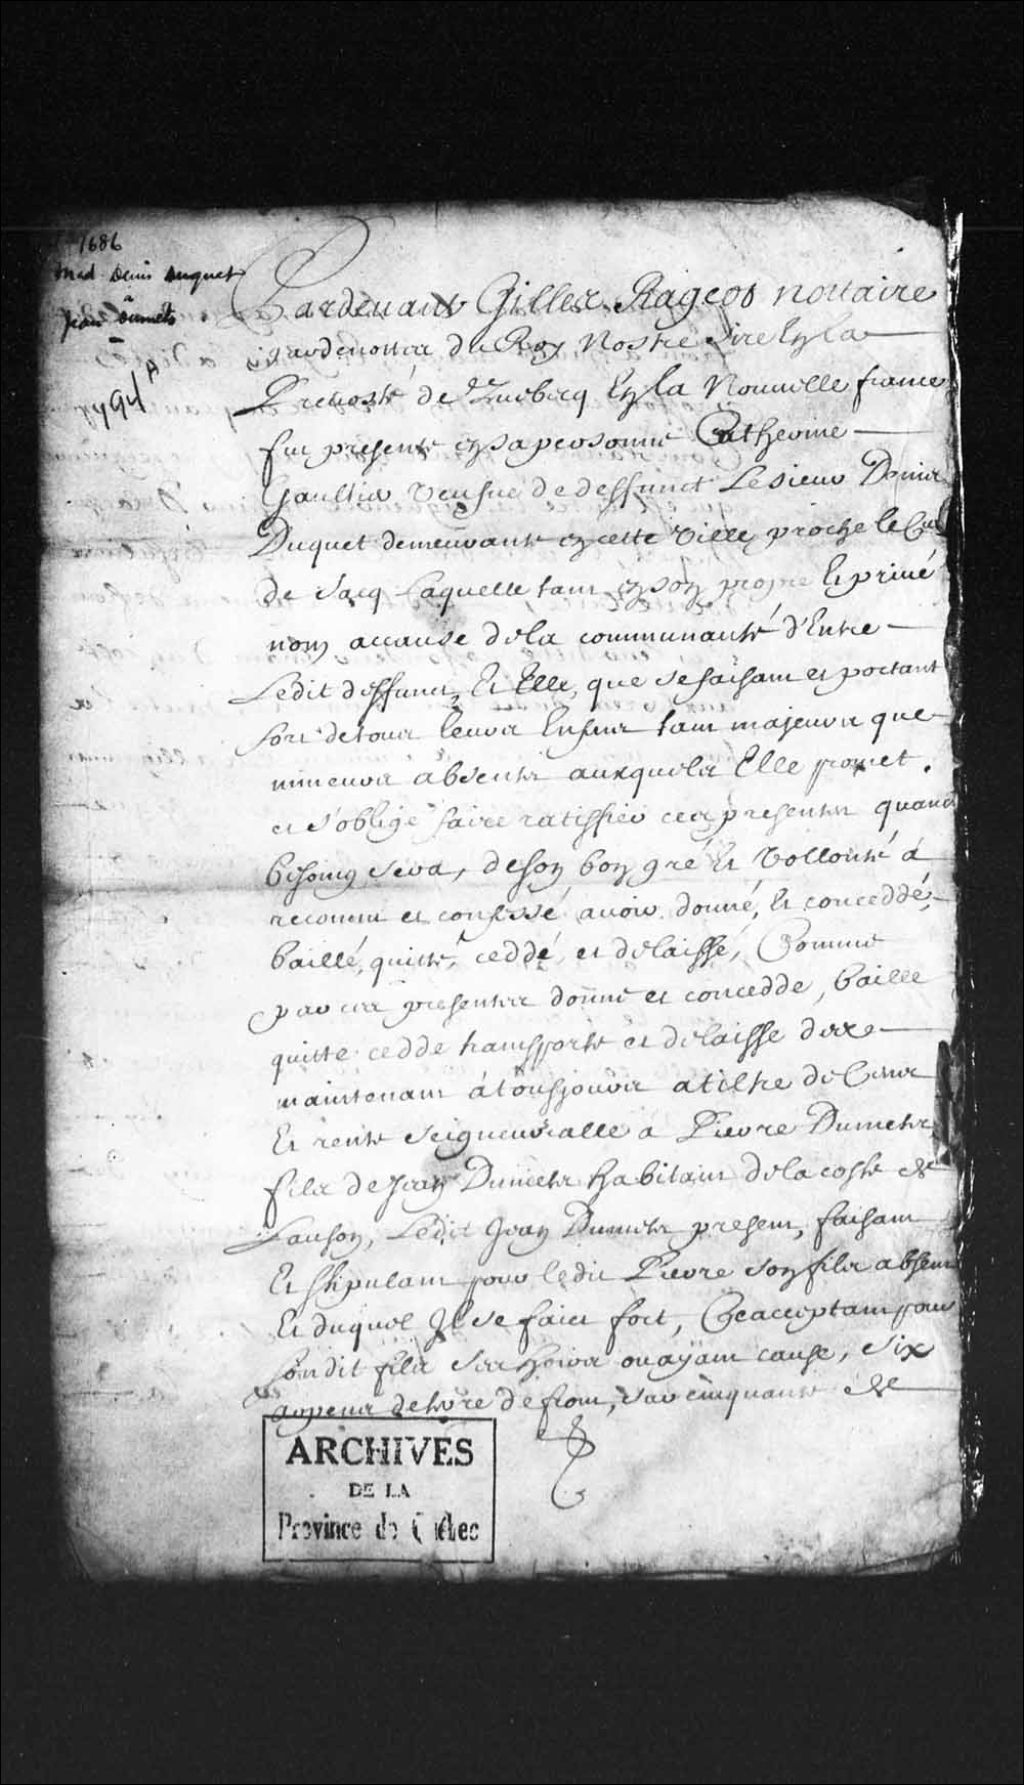 1686
Mad Denis Duquet
à
Jean Dumets
Pardeuant Gilles Rageot nottaire
gardenottes du Roy Nostre Sire En la
Preuosté de Quebecq En la Nouuelle france
fut presente en sa personne Catherine
Gaultier Veufue de deffunct Le sieur Denis
Duquet demeurante en cette Ville proche le Cul
de Sacq Laquelle tant en son propre Et priué
nom acause de la communauté d'Entre
Ledit deffunct, Et Elle, que se faisant et portant
fort de tous leurs Enfans tant majeurs que
mineurs absents auxquels Elle promet
et s'oblige faire ratiffier ces presentes quand
besoing sera, de son bon gré Et Vollonté a
reconnu et confessé auoir donné, Et conceddé,
baillé, quitté, ceddé, et delaissé, Comme
par ces presentes donne et concedde, baille
quitte cedde transporte et delaisse des
maintenant à tousjours a tiltre de Cens
Et rente Seigneurialle a Pierre Dumets
fils de Jean Dumets habitant de la coste de
Lauson, Ledit Jean Dumets present, faisant
Et stipulant pour ledit Pierre son fils absent
Et duquel Il se faict fort, Ce acceptant pour
sondit fils ses hoirs ou ayant cause, six
arpents de terre de front, sur cinquante de
ARCHIVES
DE LA
Province de Québec